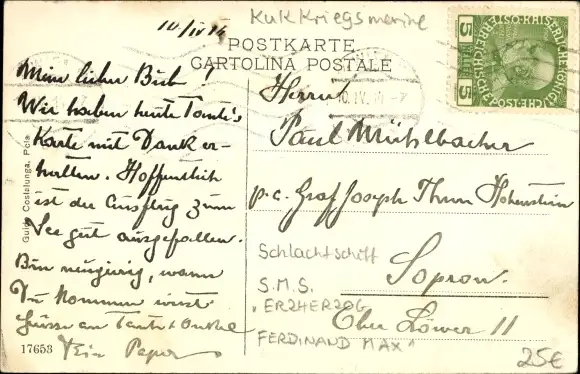 10/IV 14
KuK Kriegsmarine
POSTKARTE
CARTOLINA POSTALE
Mein lieber Bub!
Wir haben heute Tante's
Karte mit Dank er-
halten. Hoffentlich
ist der Ausflug zum
See gut ausgefallen.
Bin neugierig, wann
Du kommen wirst.
Grüsse an Tante + Onkel
Dein Papa
Herrn
Paul Mühlbacher
p.c. Graf Joseph Thun Hohenstein
Sopron
Elm Löwer 11
Schlachtschiff
S.M.S.
"ERZHERZOG
FERDINAND MAX"
25€
Guido Costalunga, Pola
17653
10.IV.
5
5
HELLER